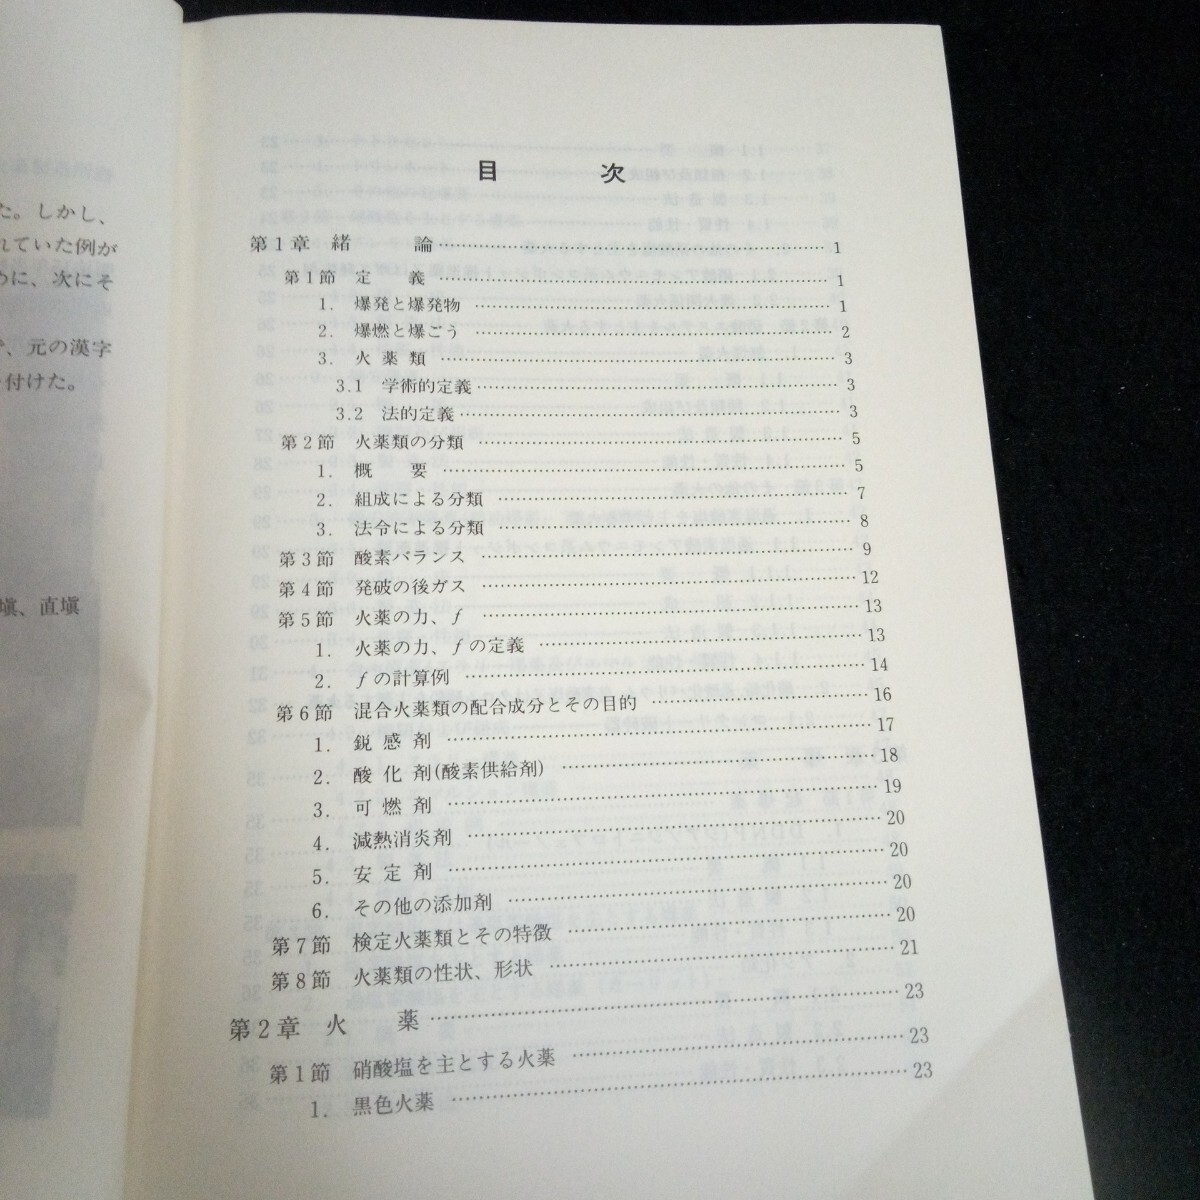 た。しかし、
れていた例が
めに、次にそ
、元の漢字
付けた。
塡、直塡
目 次
第1章 緒 論 …… 1
第1節 定 義 …… 1
1. 爆発と爆発物 …… 1
2. 爆燃と爆ごう …… 2
3. 火薬類 …… 3
3.1 学術的定義 …… 3
3.2 法的定義 …… 3
第2節 火薬類の分類 …… 5
1. 概 要 …… 5
2. 組成による分類 …… 7
3. 法令による分類 …… 8
第3節 酸素バランス …… 9
第4節 発破の後ガス …… 12
第5節 火薬の力、f …… 13
1. 火薬の力、fの定義 …… 13
2. fの計算例 …… 14
第6節 混合火薬類の配合成分とその目的 …… 16
1. 鋭感剤 …… 17
2. 酸化剤(酸素供給剤) …… 18
3. 可燃剤 …… 19
4. 減熱消炎剤 …… 20
5. 安定剤 …… 20
6. その他の添加剤 …… 20
第7節 検定火薬類とその特徴 …… 20
第8節 火薬類の性状、形状 …… 21
第2章 火 薬 …… 23
第1節 硝酸塩を主とする火薬 …… 23
1. 黒色火薬 …… 23